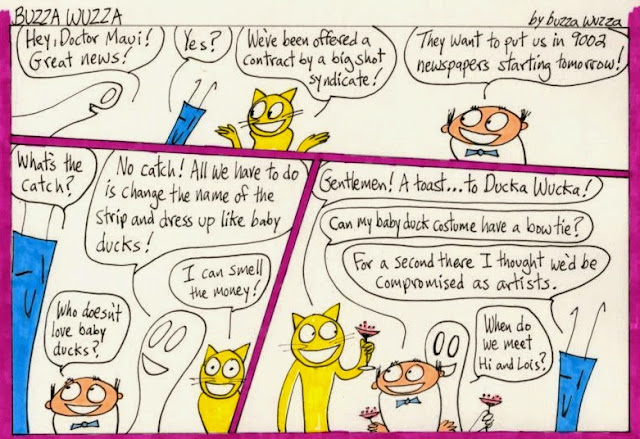 BUZZA WUZZA
by buzza wuzza
Hey, Doctor Maui!
Great news!
Yes?
We've been offered a
contract by a big shot
syndicate!
They want to put us in 9002
newspapers starting tomorrow!
What's the
catch?
No catch! All we have to do
is change the name of the
strip and dress up like baby
ducks!
I can smell
the money!
Who doesn't
love baby
ducks?
Gentlemen! A toast...to Ducka Wucka!
Can my baby duck costume have a bow tie?
For a second there I thought we'd be
compromised as artists.
When do
we meet
Hi and Lois?